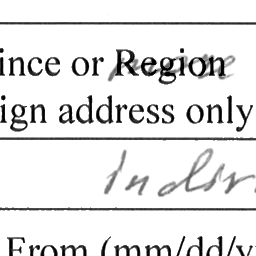 ince or Region
ign address only
indiv
From (mm/dd/y